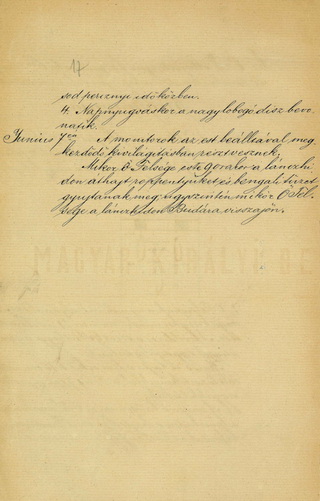 17
sed percznyi időközben.
4. Napnyugváskor a nagy lobogó dísz bevo-
natik.
Junius 7én A monitorok az est beálltával meg-
kezdődő kivilágításban részt vesznek.
Mikor Ő Felsége este 9 órakor a lánczhi-
don áthajt röppentyüket és bengali tüzet
gyujtanak meg, úgyszintén mikor Ő Fel-
sége a lánczhidon Budára visszajön.